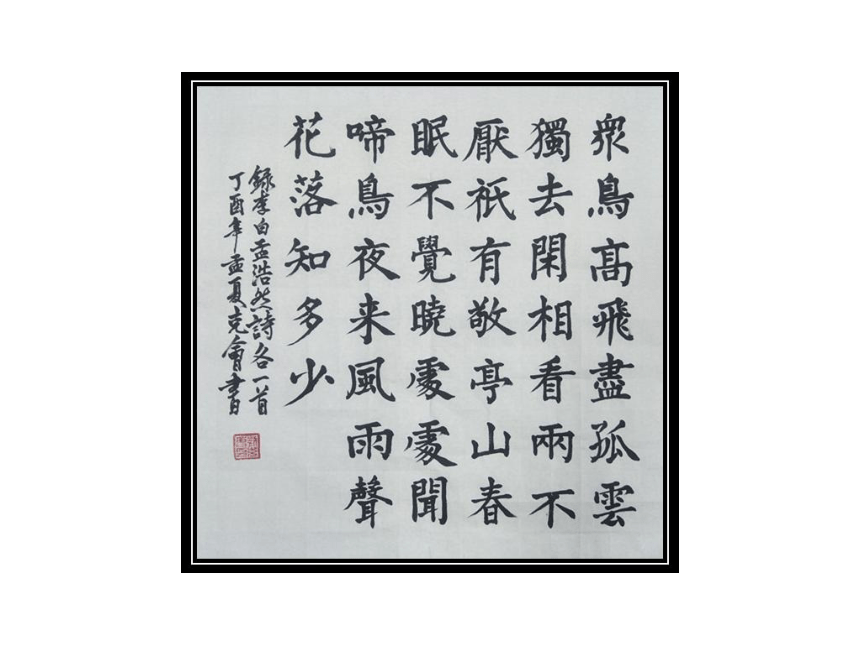 衆鳥高飛盡孤雲
獨去閑相看兩不
厭祇有敬亭山春
眠不覺曉處處聞
啼鳥夜来風雨聲
花落知多少
録李白孟浩然詩各一首
丁酉年孟夏克會書